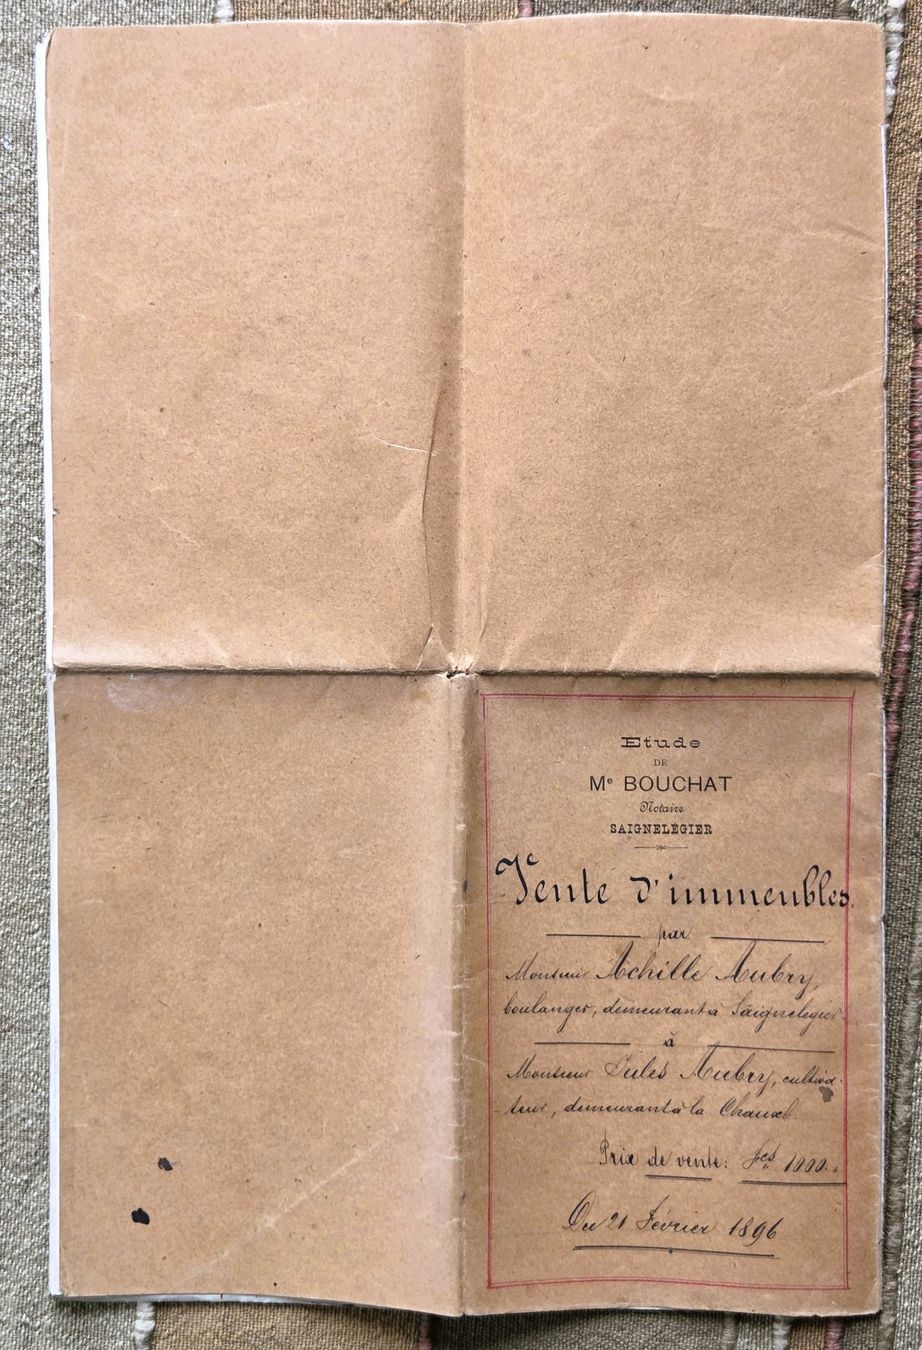 Etude
DE
Me BOUCHAT
Notaire
SAIGNELÉGIER
Vente d'immeubles.
par
Monsieur Achille Aubry,
boulanger, demeurant à Saignelégier
à
Monsieur Jules Aubry, cultiva-
teur, demeurant à la Chaux.
Prix de vente: fcs 1000.
Du 21 Février 1896